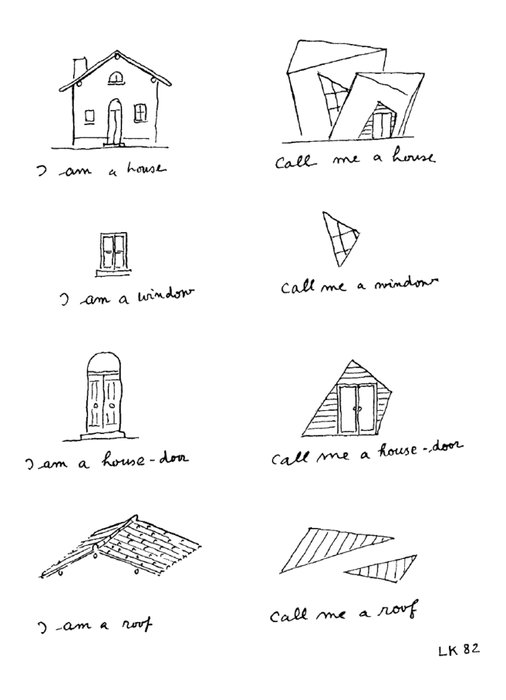 I am a house
Call me a house
I am a window
Call me a window
I am a house-door
Call me a house-door
I am a roof
Call me a roof
LK 82